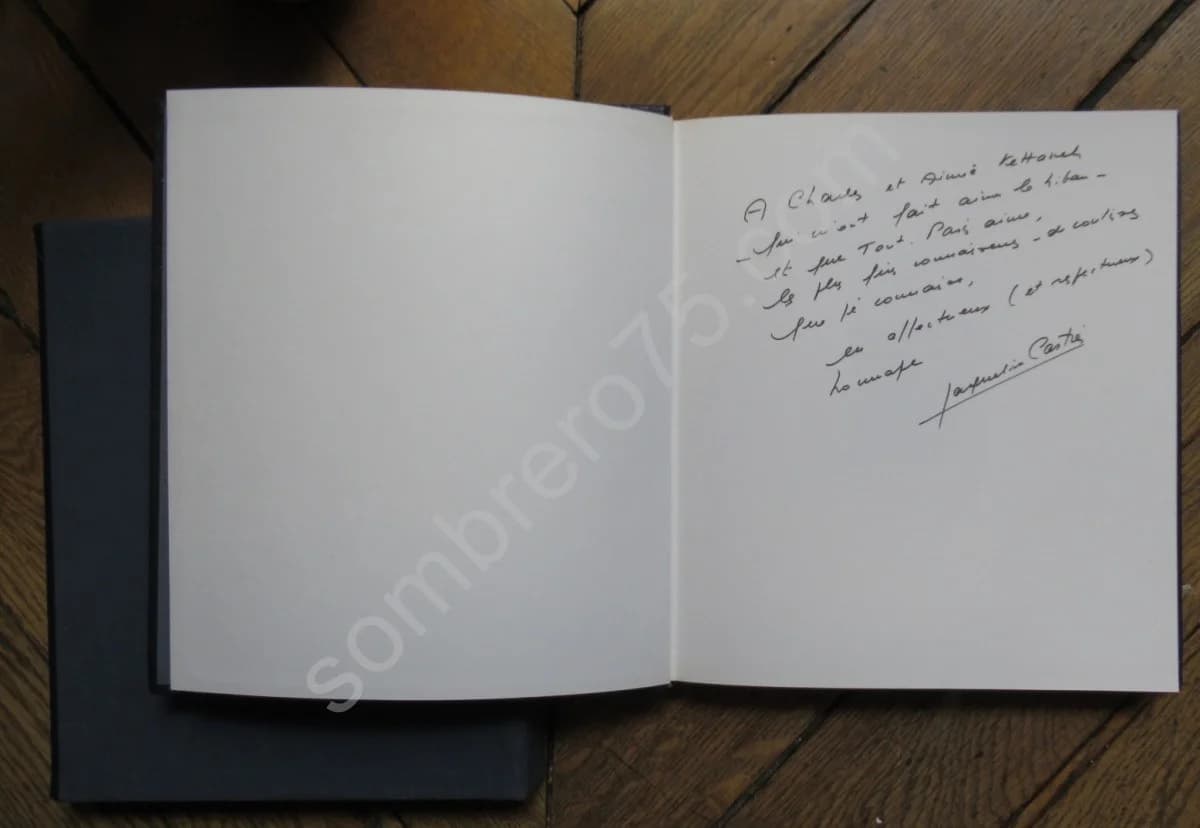 A Charles et Aimée Kettaneh
- qui m'ont fait aimer le Liban -
et que Tout. Paris aime,
les plus fins connaisseurs - de coulisses
que je connaisse,
en affectueux (et respectueux)
hommage
Jacqueline Cartier
sombrero75.com